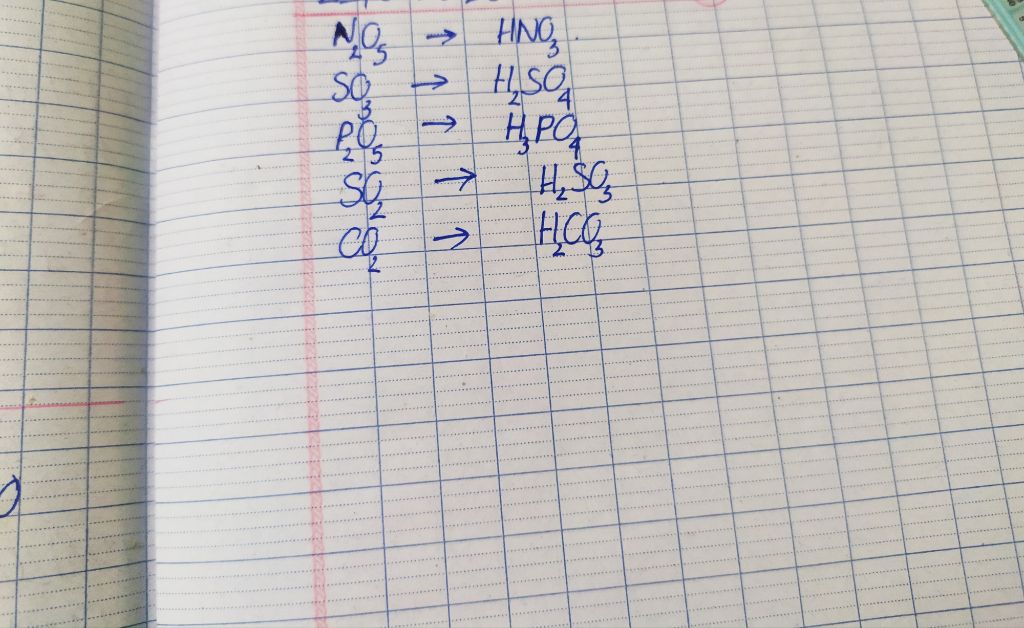 N₂O₅ → HNO₃.
SO₃ → H₂SO₄
P₂O₅ → H₃PO₄
SO₂ → H₂SO₃
CO₂ → H₂CO₃